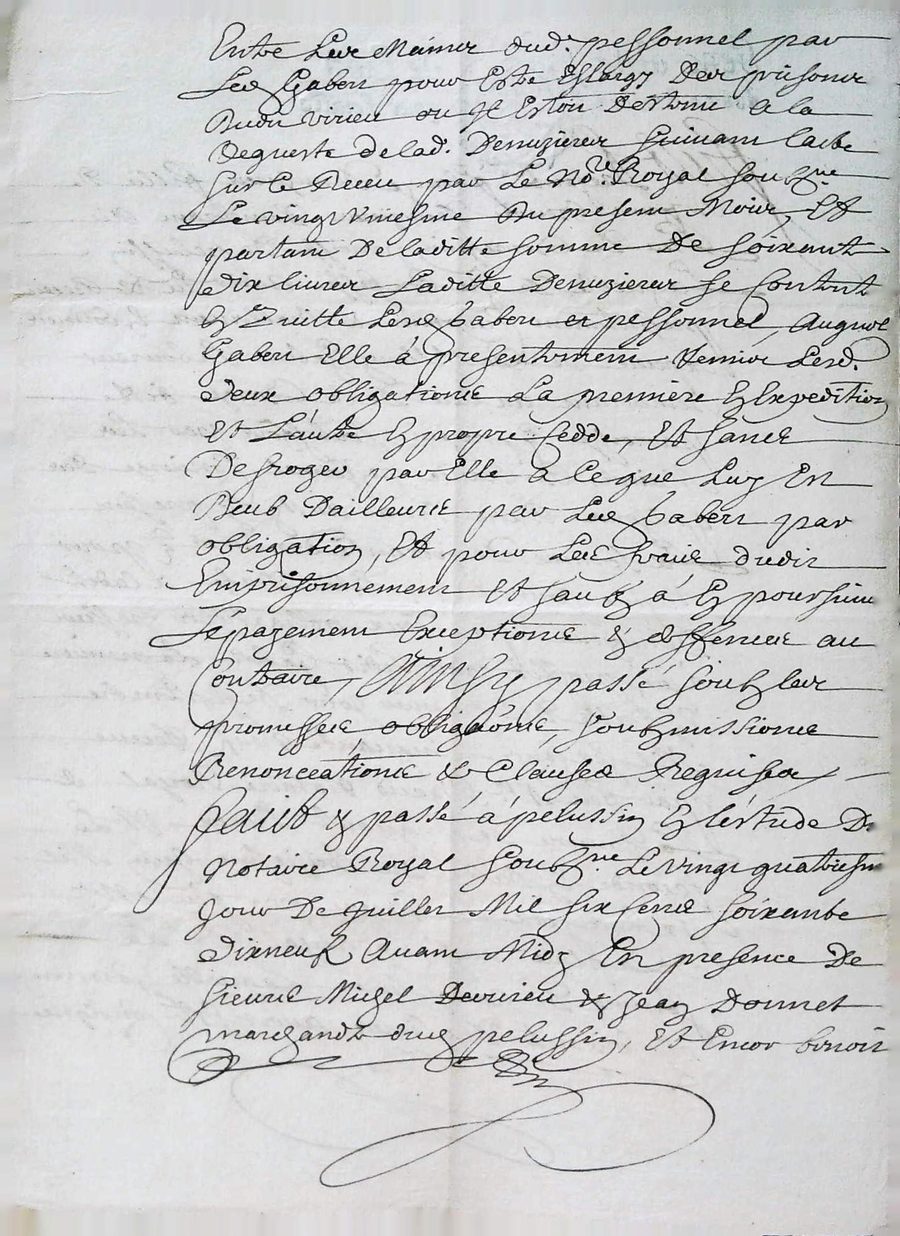 Entre Les Mains dud. pessonnel par
Led Gaberi pour Estre Eslargy Des prisons
Dudn virieu ou Il Estoit Detenu a la
Requeste de lad. Demuzieres suivant lacte
sur ce Receu par Le No.re Royal soubz.ne
Le vingt Uniesme Du present Mois, Et
partant De laditte somme De soixante
dix livres Laditte Demuzieres se Contente
Et Quitte Lesd Gaberi et pessonnel, Auquel
Gaberi Elle à presentement Remis Lesd.
deux obligations La premiere En Expedition
Et L'autre En propre Cedde, Et sans
Desroger par Elle a Ce que Luy En
Deub D'ailleurs par Led Gaberi par
obligation, Et pour Les frais dudit
Emprisonnement Et sauf à En poursuivre
Le payement Exceptions & deffences au
Contraire, Ainsy passé soubz leur
promesses obligaōns, soubzmissions
Renonceations & Clauses Requises /
Faict & passé à pelussin En l'estude D.
Notaire Royal soubz.ne Le vingt quatriesm
Jour De Juillet Mil six Cens soixante
dixneuf Avant Midy En presence De
sieurs Michel Devirieu & Jean Donnet
marchandz dud pelussin, Et Encor benoit